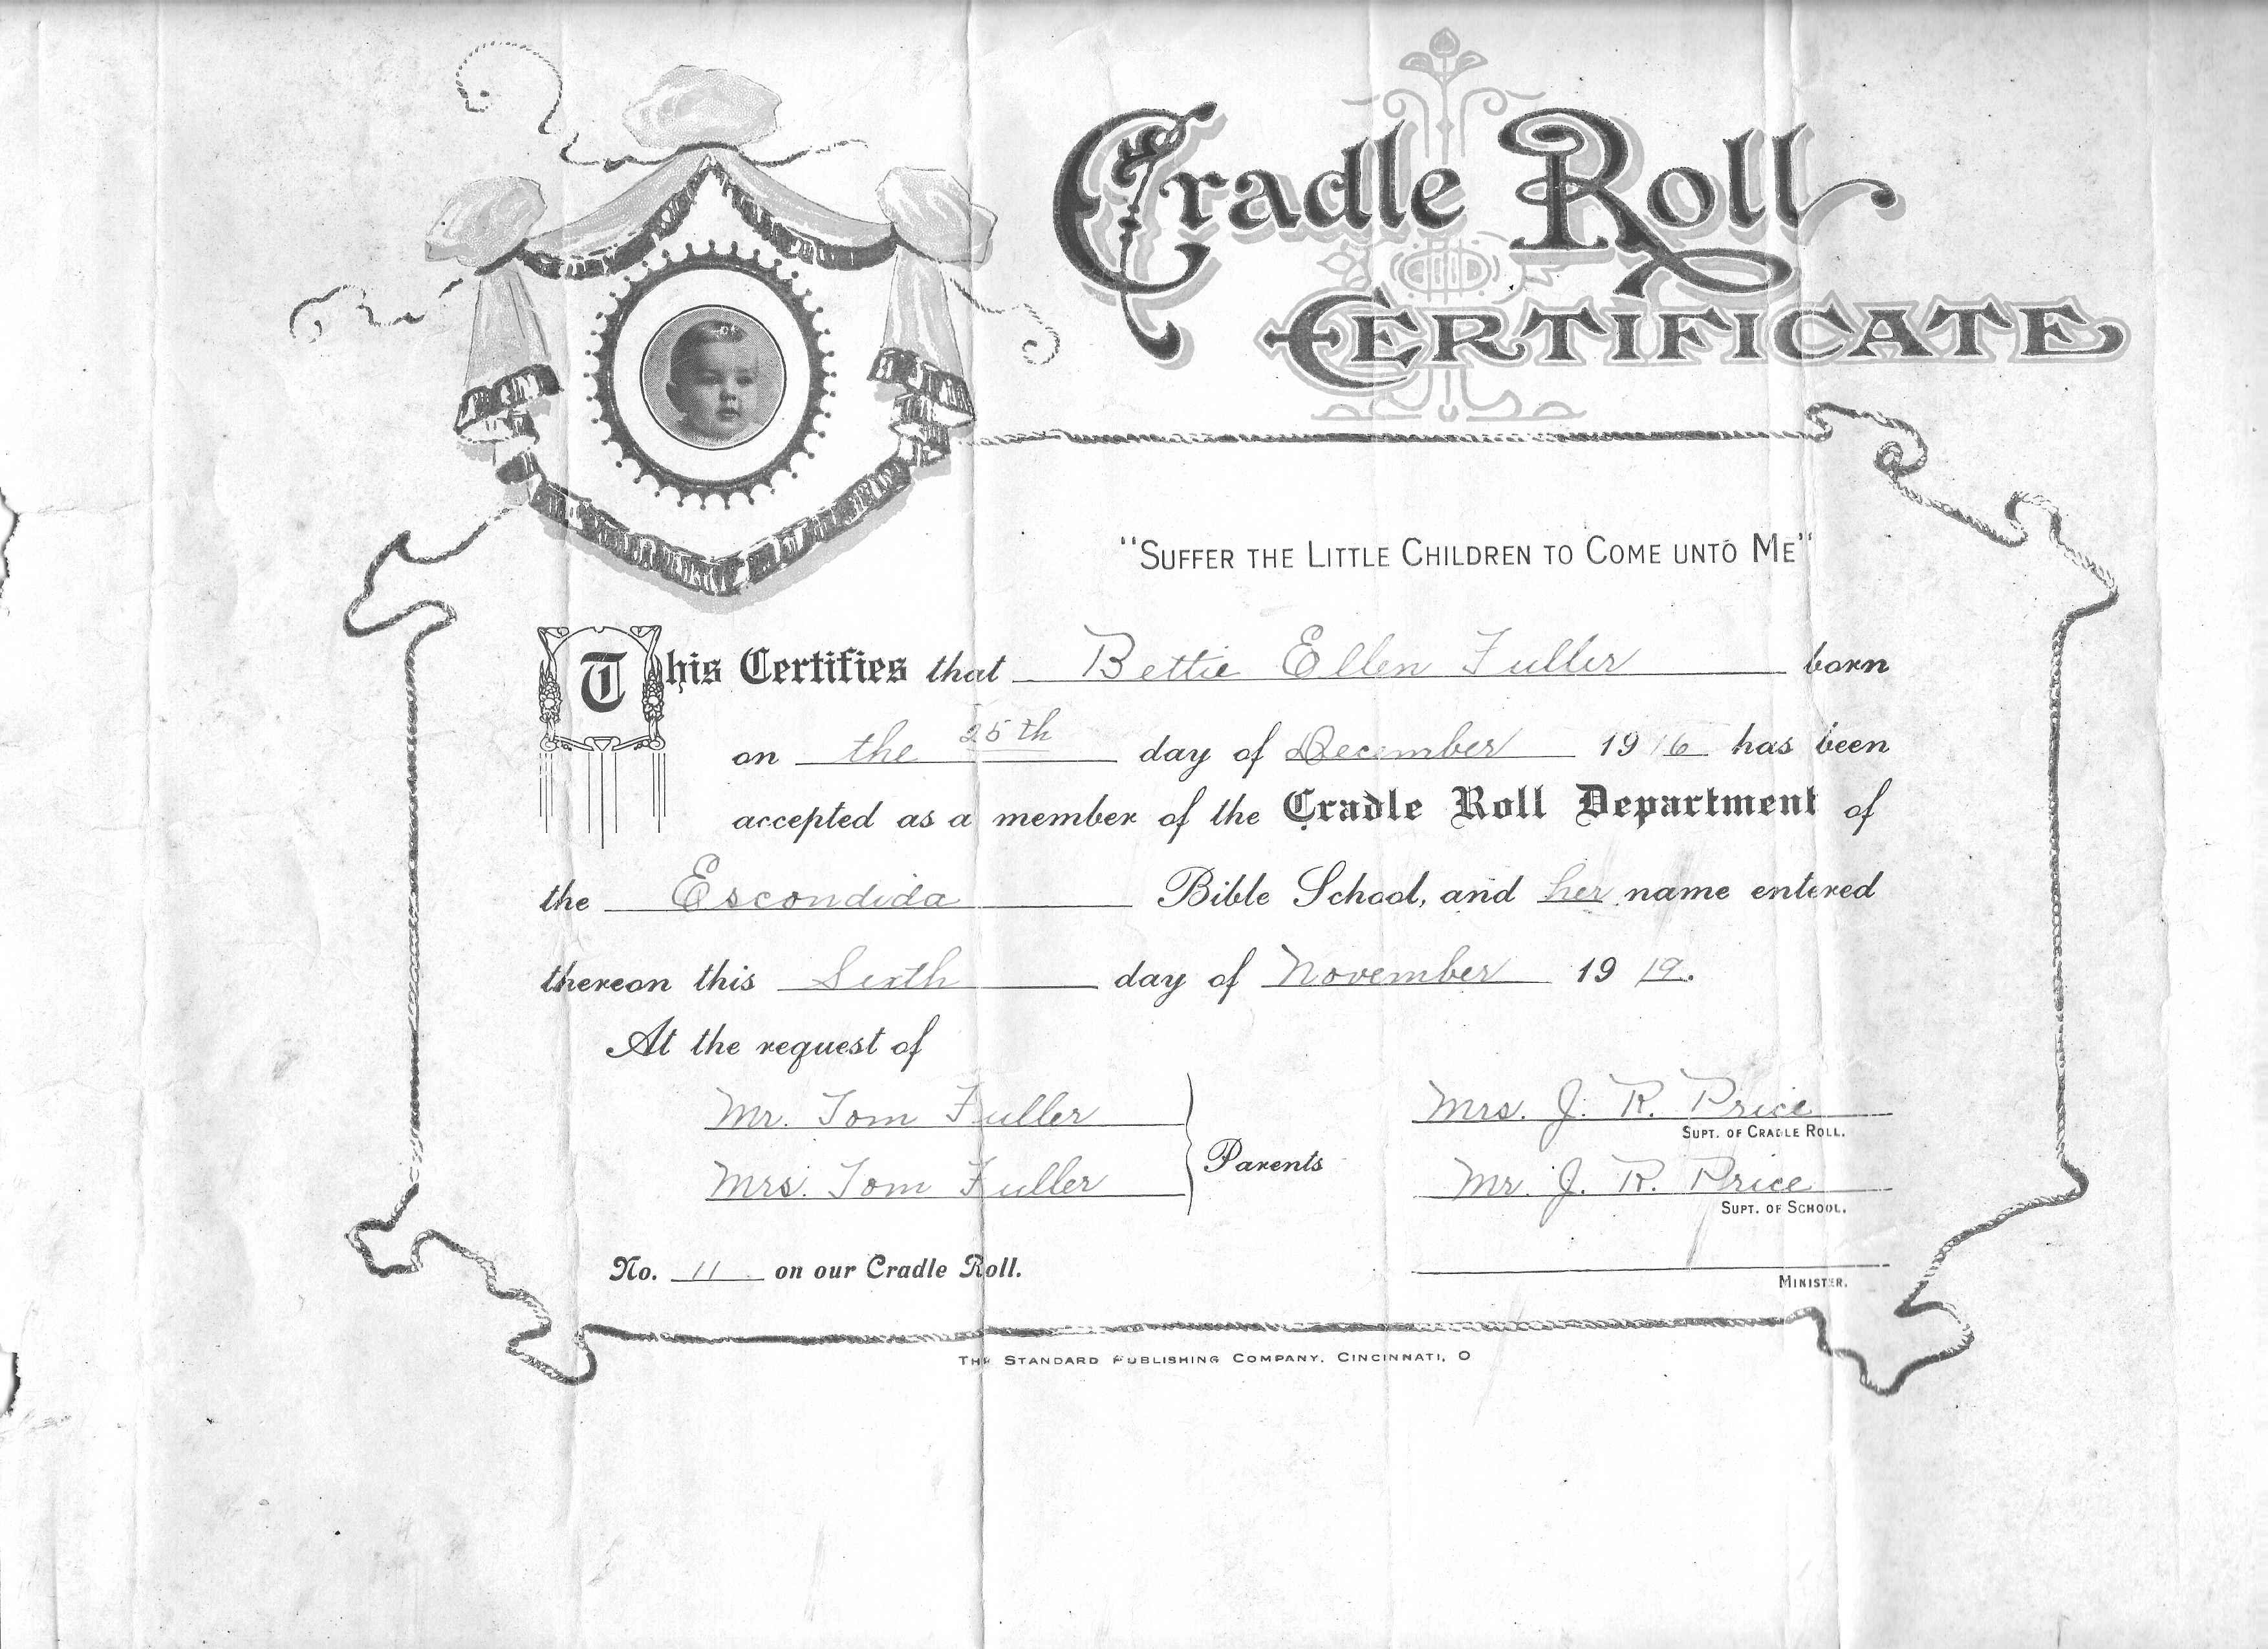 Cradle Roll
CERTIFICATE
"SUFFER THE LITTLE CHILDREN TO COME UNTO ME"
This Certifies that Bettie Ellen Fuller born
on the 25th day of December 1916 has been
accepted as a member of the Cradle Roll Department of
the Escondida Bible School, and her name entered
thereon this Sixth day of November 19 19.
At the request of
Mr. Tom Fuller
Mrs. Tom Fuller
Parents
Mrs. J. R. Price
SUPT. OF CRADLE ROLL.
Mr. J. R. Price
SUPT. OF SCHOOL.
No. 11 on our Cradle Roll.
MINISTER.
THE STANDARD PUBLISHING COMPANY, CINCINNATI, O